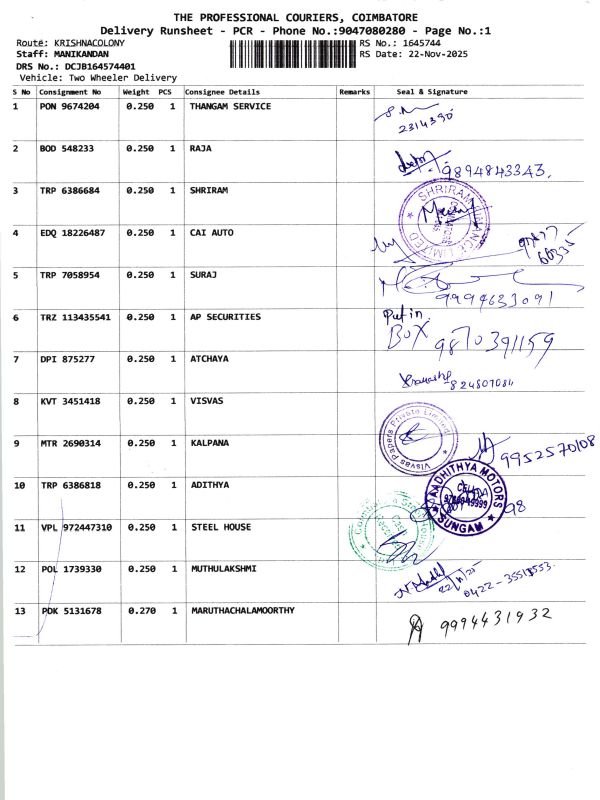 THE PROFESSIONAL COURIERS, COIMBATORE
Delivery Runsheet - PCR - Phone No.:9047080280 - Page No.:1
Route: KRISHNACOLONY RS No.: 1645744
Staff: MANIKANDAN RS Date: 22-Nov-2025
DRS No.: DCJB164574401
Vehicle: Two Wheeler Delivery
S No Consignment No Weight PCS Consignee Details Remarks Seal & Signature
1 PON 9674204 0.250 1 THANGAM SERVICE
2314390
2 BOD 548233 0.250 1 RAJA
9894843343.
3 TRP 6386684 0.250 1 SHRIRAM
SHRIRAM FINANCE LIMITED
4 EDQ 18226487 0.250 1 CAI AUTO
66335
5 TRP 7058954 0.250 1 SURAJ
9994633091
6 TRZ 113435541 0.250 1 AP SECURITIES
Put in
BOX 9870391159
7 DPI 875277 0.250 1 ATCHAYA
8 KVT 3451418 0.250 1 VISVAS
Visvas Papers Private Limited
9 MTR 2690314 0.250 1 KALPANA
9952570108
10 TRP 6386818 0.250 1 ADITHYA
AADHITHYA MOTORS
CELL
SUNGAM
98
11 VPL 972447310 0.250 1 STEEL HOUSE
12 POL 1739330 0.250 1 MUTHULAKSHMI
22/11/25
13 PDK 5131678 0.270 1 MARUTHACHALAMOORTHY
9994431932